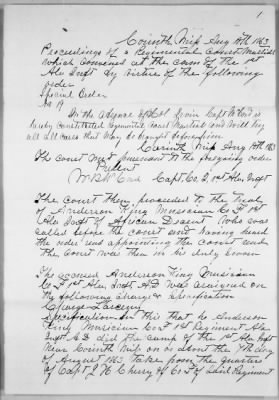 1
Corinth Miss Aug 11th 1863
Proceedings of a Regimental Court Martial
which convened at the camp of the 1st
Ala Inft by virtue of the following
order
Special Order
No 9
In the absence of Col Capt W Cord is
hereby constituted Regimental Court Martial and Will try
all all cases that May be brought before him
Corinth Miss Aug 11th 1863
The Court Met pursuant to the foregoing order
Present
Capt. Co 1st Ala. Inft
The Court then proceeded to the trial
of Anderson King Musician Co F 1st
Ala Inft of African Desent Who was
called before the court and having heard
the order read appointing the court and
the Court was then in his duly Sworn
The accused Anderson King Musician
Co F 1st Ala. Inft. A.D was arsigned on
the following charge & Specification
Charge Larceny
Specification In this that he Anderson
King Musician Co F 1st Regiment Ala
Inft A.D did the camp of the 1st Ala Inft
Near Corinth Miss on or about the 7th day
of August 1863, take from the quarters
of Capt J W Cherry of Co F of said Regiment